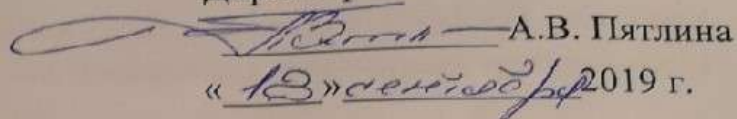 А.В. Пятлина
« 18 » сентября 2019 г.